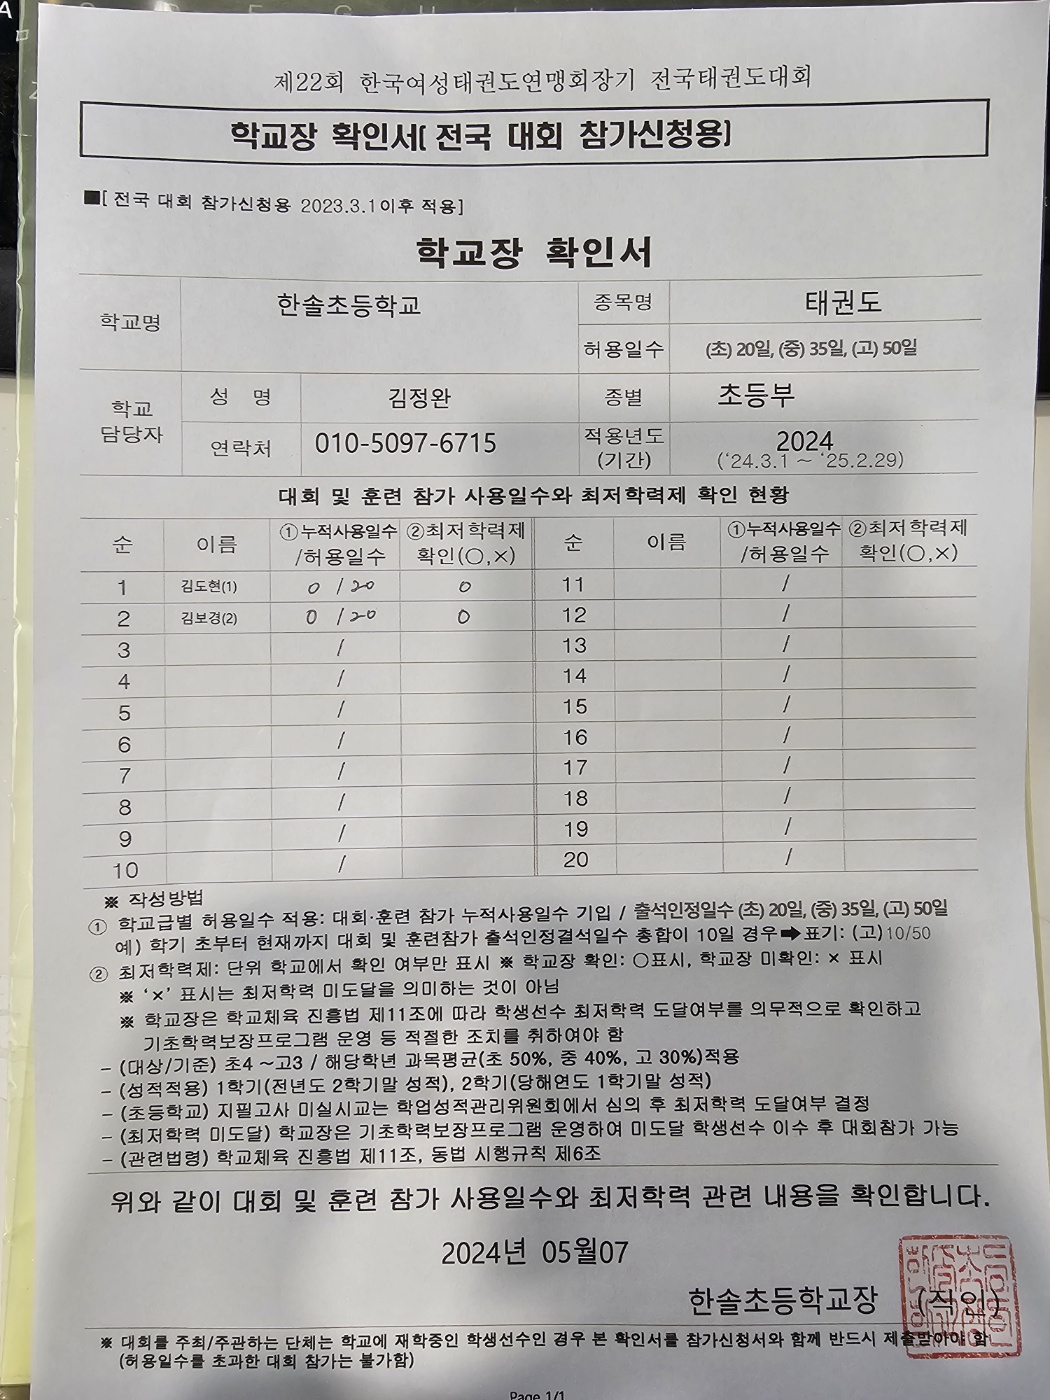 제22회 한국여성태권도연맹회장기 전국태권도대회
학교장 확인서[ 전국 대회 참가신청용]
■[ 전국 대회 참가신청용 2023.3.1이후 적용]
학교장 확인서
학교명 한솔초등학교 종목명 태권도
허용일수 (초) 20일, (중) 35일, (고) 50일
학교 담당자 성 명 김정완 종별 초등부
연락처 010-5097-6715 적용년도 (기간) 2024 (‘24.3.1 ~ ‘25.2.29)
대회 및 훈련 참가 사용일수와 최저학력제 확인 현황
순 이름 ①누적사용일수 /허용일수 ②최저학력제 확인(○,×) 순 이름 ①누적사용일수 /허용일수 ②최저학력제 확인(○,×)
1 김도현(1) 0 / 20 0 11 /
2 김보경(2) 0 / 20 0 12 /
3 / 13 /
4 / 14 /
5 / 15 /
6 / 16 /
7 / 17 /
8 / 18 /
9 / 19 /
10 / 20 /
※ 작성방법
① 학교급별 허용일수 적용: 대회·훈련 참가 누적사용일수 기입 / 출석인정일수 (초) 20일, (중) 35일, (고) 50일
예) 학기 초부터 현재까지 대회 및 훈련참가 출석인정결석일수 총합이 10일 경우➡표기: (고)10/50
② 최저학력제: 단위 학교에서 확인 여부만 표시 ※ 학교장 확인: ○표시, 학교장 미확인: × 표시
※ ‘×’ 표시는 최저학력 미도달을 의미하는 것이 아님
※ 학교장은 학교체육 진흥법 제11조에 따라 학생선수 최저학력 도달여부를 의무적으로 확인하고
기초학력보장프로그램 운영 등 적절한 조치를 취하여야 함
– (대상/기준) 초4 ~고3 / 해당학년 과목평균(초 50%, 중 40%, 고 30%)적용
– (성적적용) 1학기(전년도 2학기말 성적), 2학기(당해연도 1학기말 성적)
– (초등학교) 지필고사 미실시교는 학업성적관리위원회에서 심의 후 최저학력 도달여부 결정
– (최저학력 미도달) 학교장은 기초학력보장프로그램 운영하여 미도달 학생선수 이수 후 대회참가 가능
– (관련법령) 학교체육 진흥법 제11조, 동법 시행규칙 제6조
위와 같이 대회 및 훈련 참가 사용일수와 최저학력 관련 내용을 확인합니다.
2024년 05월07
한솔초등학교장 (직인)
※ 대회를 주최/주관하는 단체는 학교에 재학중인 학생선수인 경우 본 확인서를 참가신청서와 함께 반드시 제출받아야 함
(허용일수를 초과한 대회 참가는 불가함)
Page 1/1